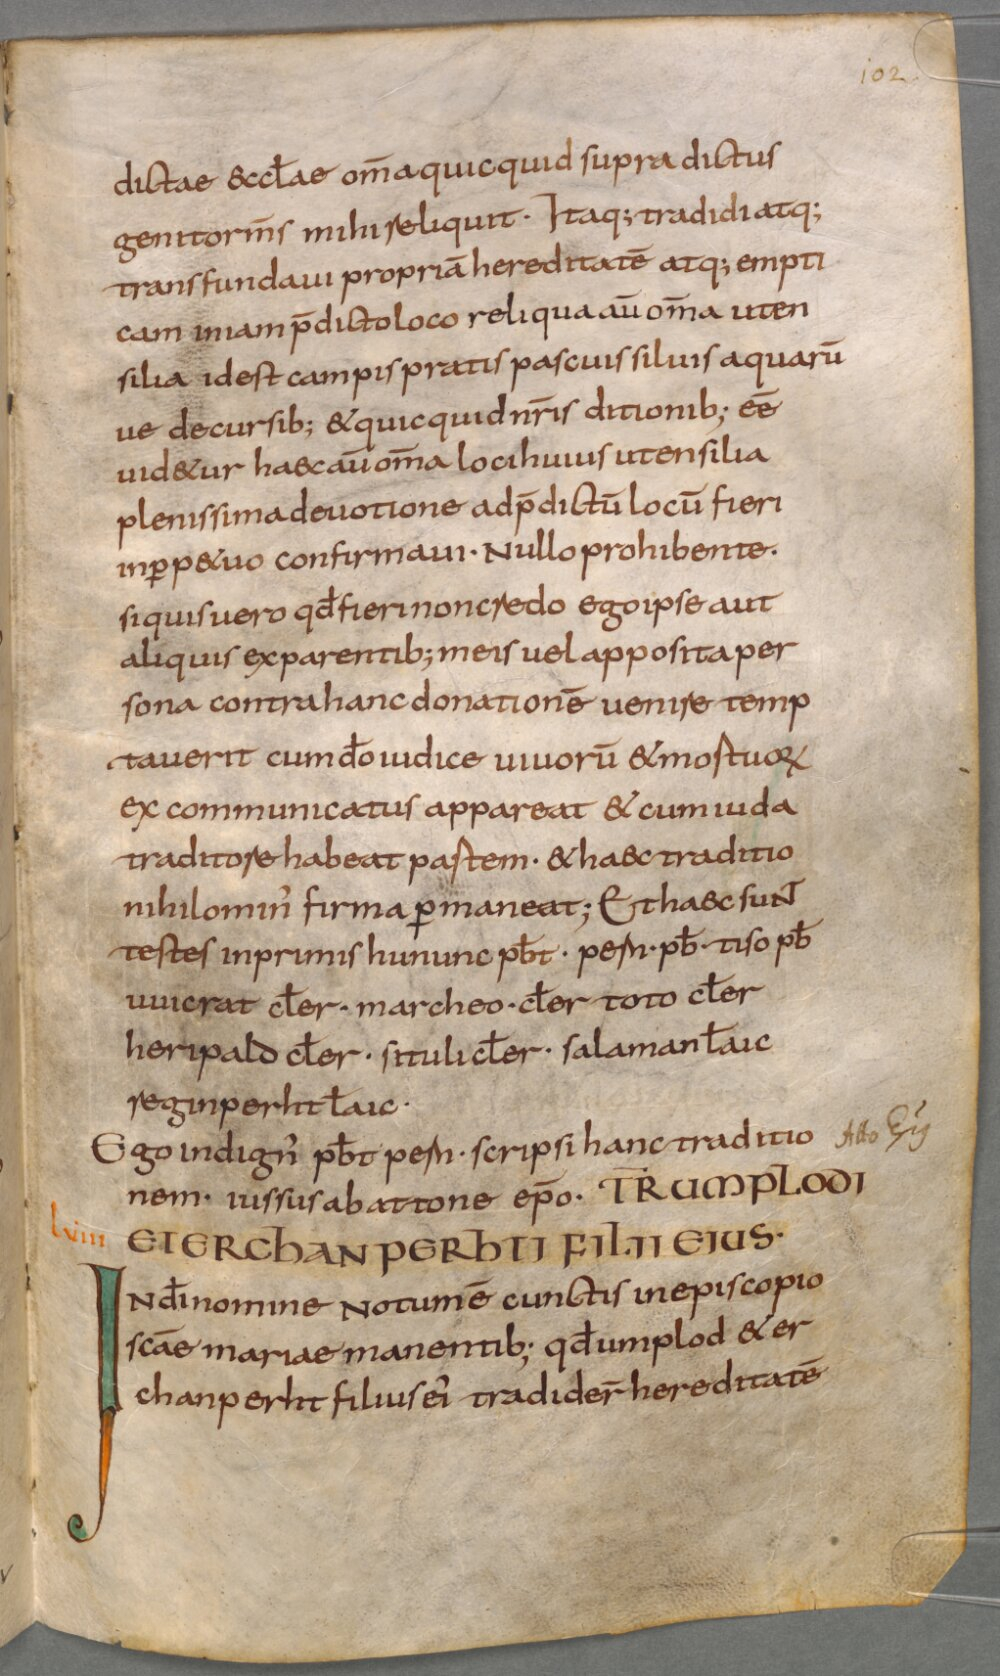 102
dictae &ccl̄ae om̄a quicquid supra dictus
genitor m̄s mihi reliquit. Itaq; tradidi atq;
transfundaui propriā hereditatē atq; empti
cam iniam p̄dicto loco reliqua aū om̄a uten
silia id est campis pratis pascuis siluis aquarū
ue decursib; & quicquid nr̄is ditionib; eē
uid&ur haec aū om̄a loci huius utensilia
plenissima deuotione ad p̄dictū locū fieri
in ꝑp&uo confirmaui. Nullo prohibente.
si quis uero qd̄ fieri non credo ego ipse aut
aliquis ex parentib; meis uel apposita per
sona contra hanc donationē uenire temp
tauerit cum d̄o iudice uiuorū & mortuoꝝ
ex communicatus appareat & cum iuda
traditore habeat partem. & haec traditio
nihilomin᾽ firma ꝑmaneat; Et haec sunt
testes inprimis hununc pb̄t. pern. pb̄. tiso pb̄
uuicrat cl̄er. marcheo. cl̄er toto cl̄er
heripald cl̄er. situli cl̄er. salaman l̄aic
reginperht l̄aic.
Ego indign᾽ pb̄t pern. scripsi hanc traditio
Atto Ep̄s
nem. iussus ab attone ep̄o. TR̄ UMPLODI
lviii ET ERCHANPERHTI FILII EIUS.
IN d̄i nomine Notum ē cunctis in episcopio
sc̄ae mariae manentib; qd̄ umplod & er
chanperht filius ei᾽ tradider̄ hereditatē